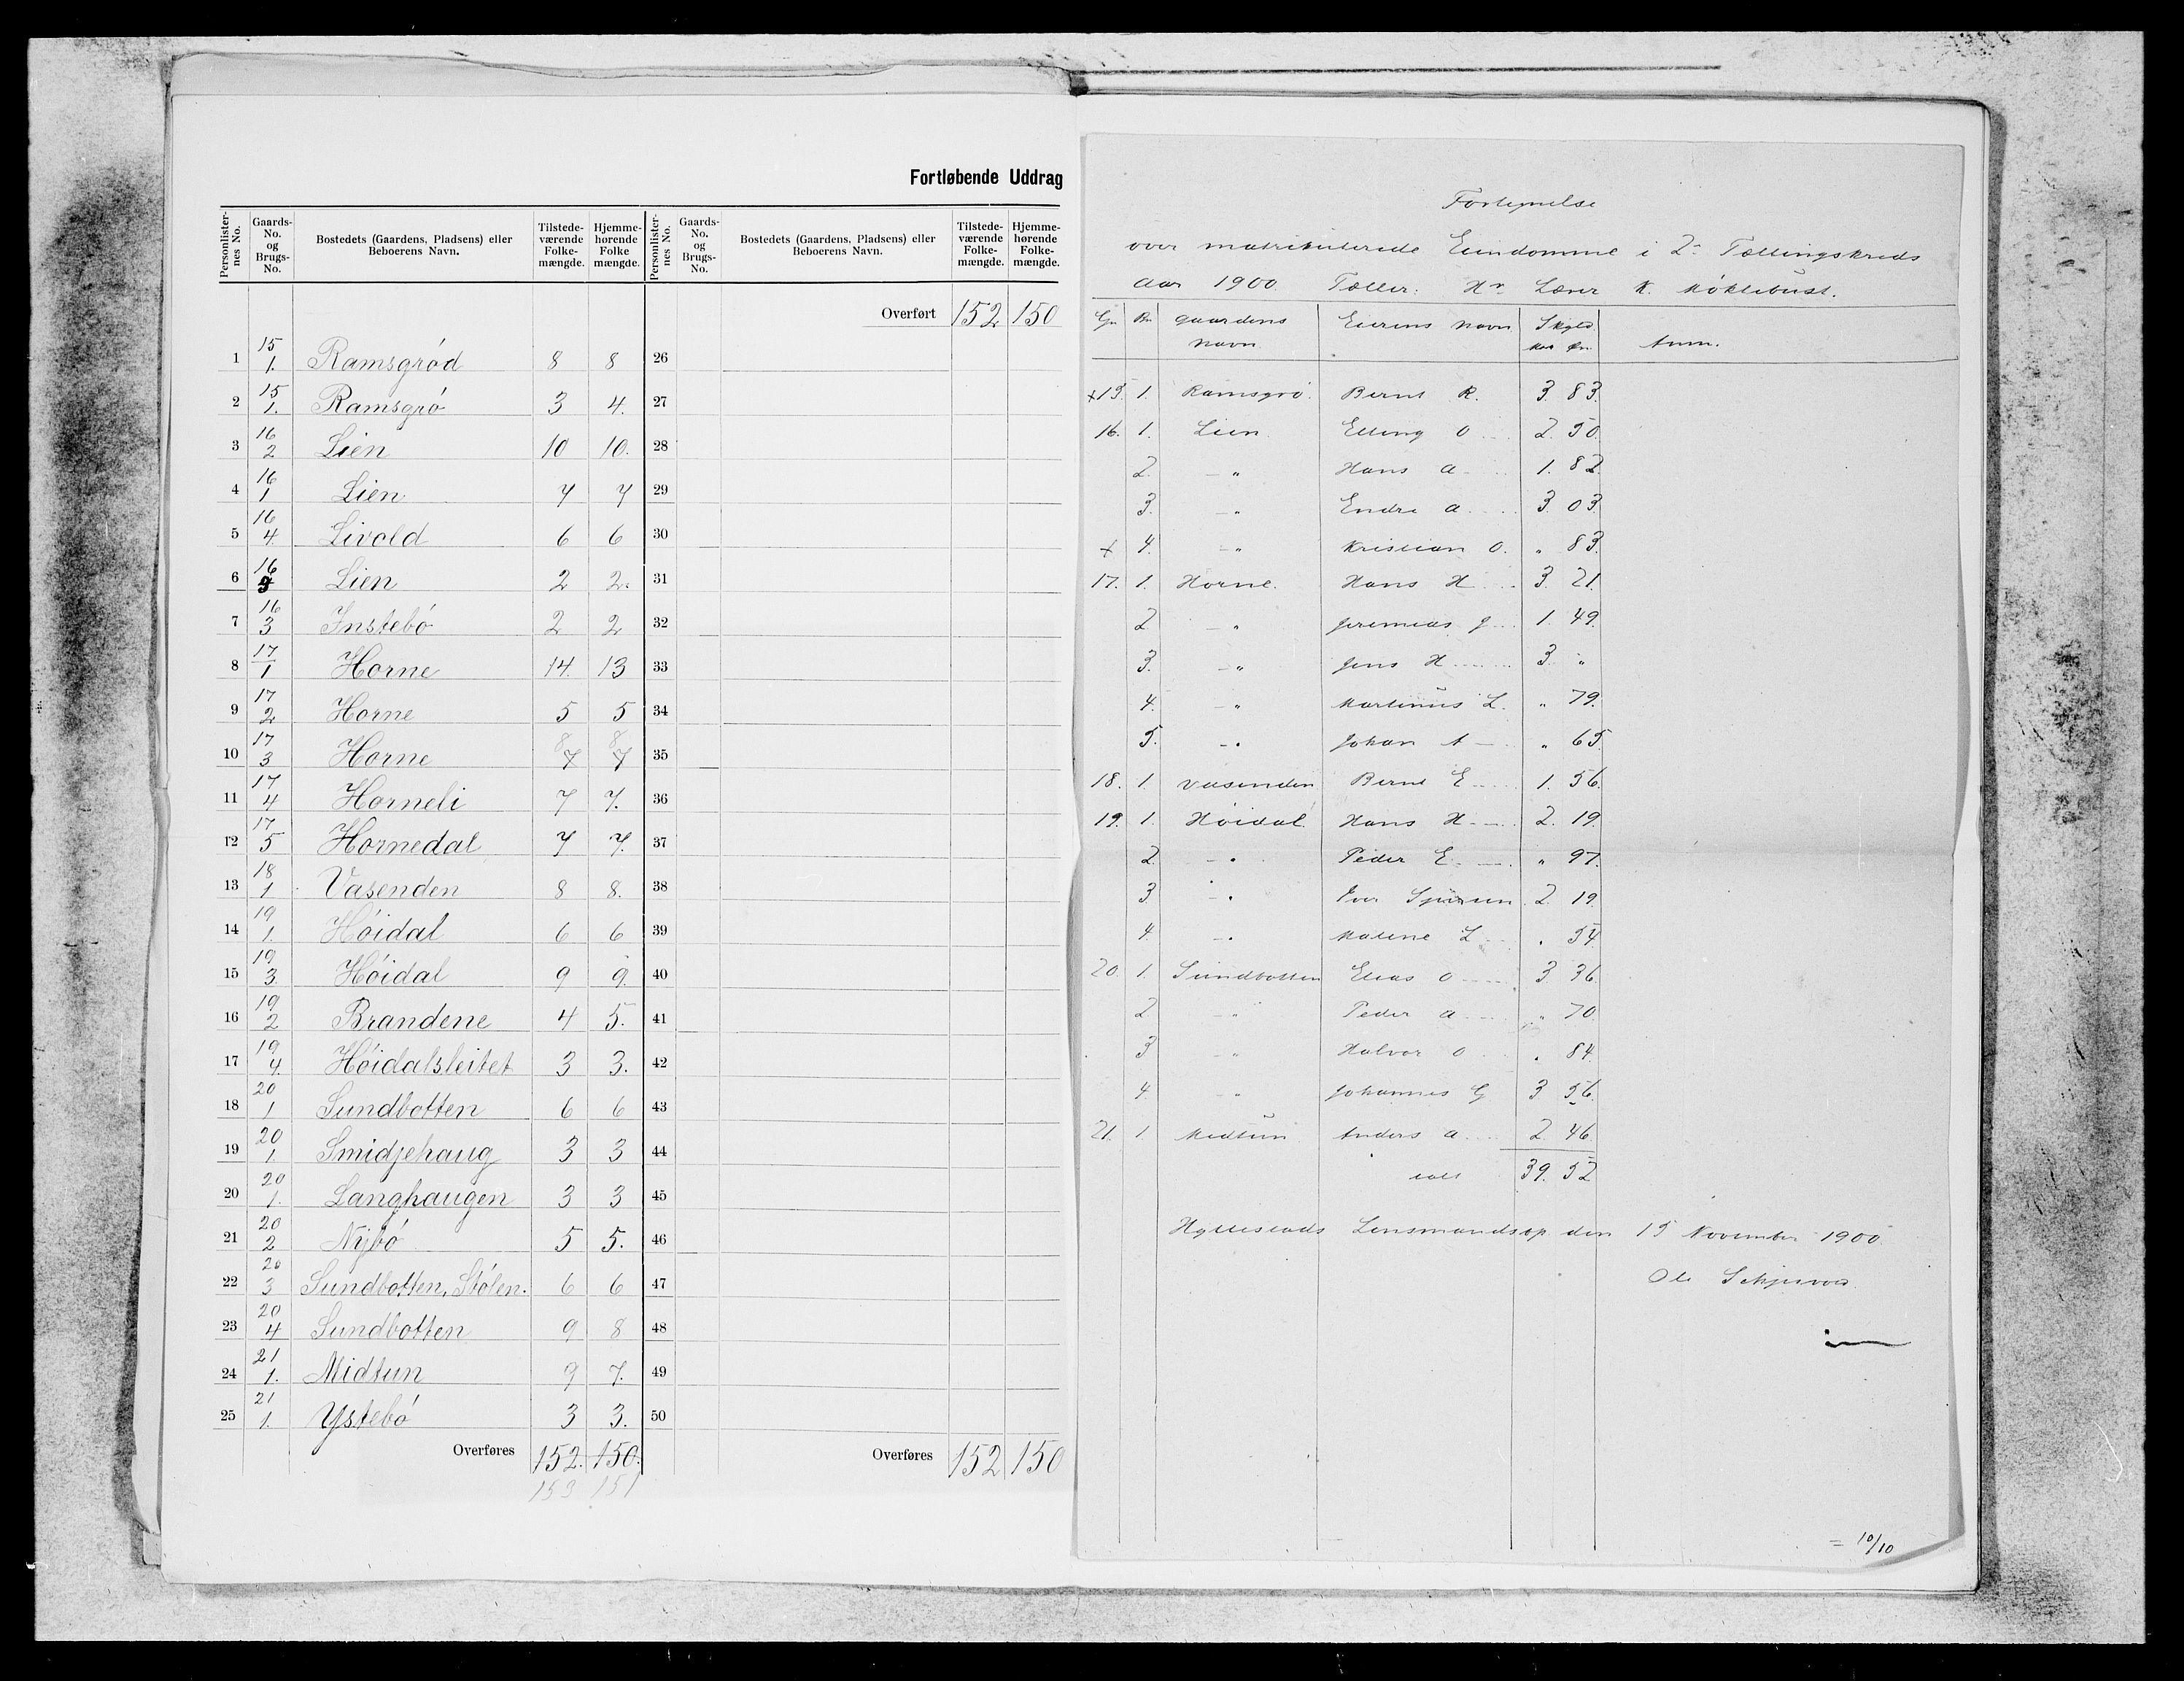 Fortløbende Uddrag
Personlister-nes No. Gaards-No. og Brugs-No. Bostedets (Gaardens, Pladsens) eller Beboerens Navn. Tilstede-værende Folke-mængde. Hjemme-hørende Folke mængde.
Personlister-nes No. Gaards-No. og Brugs-No. Bostedets (Gaardens, Pladsens) eller Beboerens Navn. Tilstede-værende Folke-mængde. Hjemme-hørende Folke-mængde.
Overført 152 150
1 15/1. Ramsgrød 8 8 26
2 15/1. Ramsgrö 3 4. 27
3 16/2 Lien 10 10. 28
4 16/1 Lien 7 7 29
5 16/4. Livold 6 6 30
6 16 Lien 2 2. 31
7 16/3 Instebö 2 2 32
8 17/1 Horne 14. 13 33
9 17/2 Horne 5 5 34
10 17/3 Horne 8 7 8 7 35
11 17/4 Horneli 7 7. 36
12 17/5 Hornedal 7 7. 37
13 18/1 Vasenden 8 8. 38
14 19/1. Höidal 6 6 39
15 19/3. Höidal 9 9. 40
16 19/2 Brandene 4 5. 41
17 19/4. Höidalsleitet 3 3. 42
18 20/1 Sundbotten 6 6 43
19 20/1. Smidjehaug 3 3 44
20 20/1. Langhaugen 3 3 45
21 20/2 Nybö 5 5. 46
22 20/3 Sundbotten, Stölen. 6 6 47
23 20/4 Sundbotten 9 8 48
24 21/1. Midtun 9 7. 49
25 21/1. Ystebö 3 3. 50
Overføres 152. 150. Overføres 152 150
153 151
Fortegnelse
over matrikulerede Eiendomme i 2. Tællingskreds
Aar 1900. Tæller: Hr Lærer K. Möklebust.
Gn Bn Gaardens Navn Eierens Navn Skyld Mrk Ør. Anm.
x 15. 1. Ramsgrö. Bernt R. 3. 83.
16. 1. Lien Elling O 2. 50.
2. — " Hans A 1. 82.
3. — " Endre A 3. 03.
x 4. — " Kristian O. " 83.
17. 1. Horne. Hans H 3. 21.
2 — " Jeremias J 1. 49.
3. — " Jens H 3. "
4. — " Martinus L. " 79.
5. — " Johan A " 65.
18. 1. Vasenden Bernt E 1. 56.
19. 1. Höidal. Hans H 2. 19.
2 — " Peder E. " 97.
3 — " Iver 2. 19.
4. — " Malene L . 54.
20. 1. Sundbotten Elias O 3 36
2 — " Peder A " 70
3 — " Halvor O . 84.
4. — " Johannes G 3 56.
21. 1. Midtun Anders A 2. 46.
ialt 39. 52
Hyllestads Lensmandsop den 15 November 1900.
Ole
= 10/10